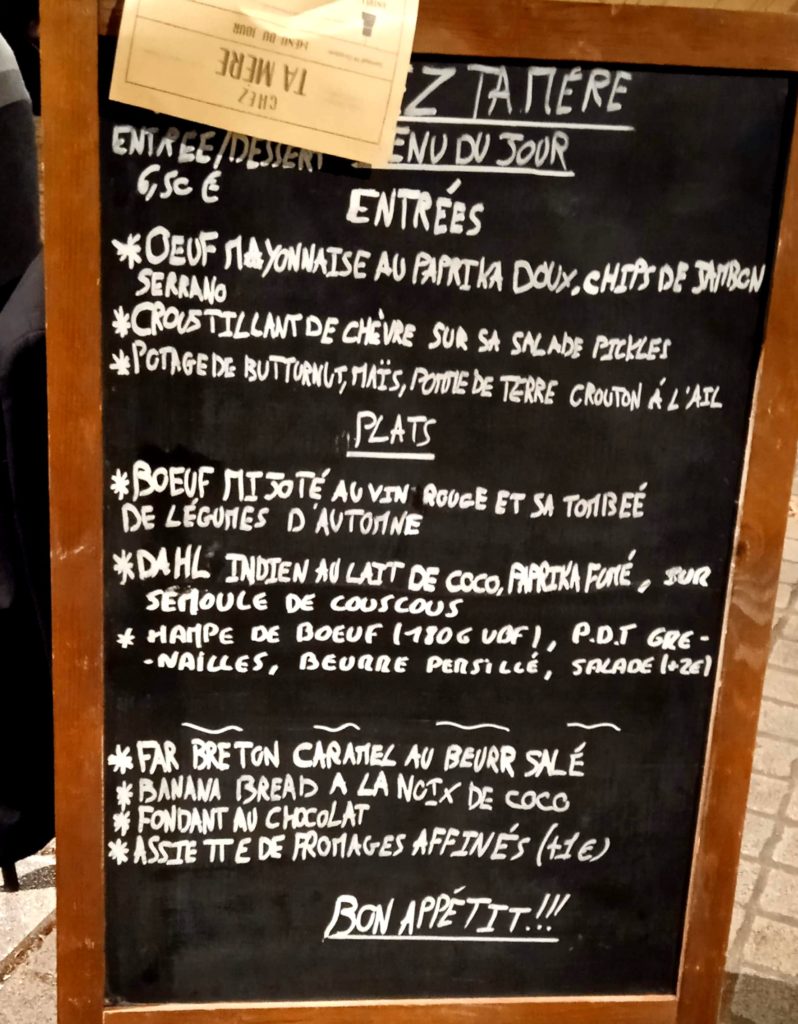 CHEZ
TA MERE
MENU DU JOUR
EZ TA MÈRE
ENTREE/DESSERT ENU DU JOUR
6,50 €
ENTRÉES
*OEUF MAYONNAISE AU PAPRIKA DOUX, CHIPS DE JAMBON
SERRANO
*CROUSTILLANT DE CHÈVRE SUR SA SALADE PICKLES
*POTAGE DE BUTTURNUT, MAÏS, POMME DE TERRE CROUTON À L'AIL
PLATS
*BOEUF MIJOTÉ AU VIN ROUGE ET SA TOMBEÉ
DE LÉGUMES D'AUTOMNE
*DAHL INDIEN AU LAIT DE COCO, PAPRIKA FUMÉ, SUR
SEMOULE DE COUSCOUS
* HAMPE DE BOEUF (180G VBF), P.D.T GRE-
-NAILLES, BEURRE PERSILLÉ, SALADE (+2€)
*FAR BRETON CARAMEL AU BEURR SALÉ
*BANANA BREAD A LA NOIX DE COCO
*FONDANT AU CHOCOLAT
*ASSIETTE DE FROMAGES AFFINÉS (+1€)
BON APPÉTIT!!!